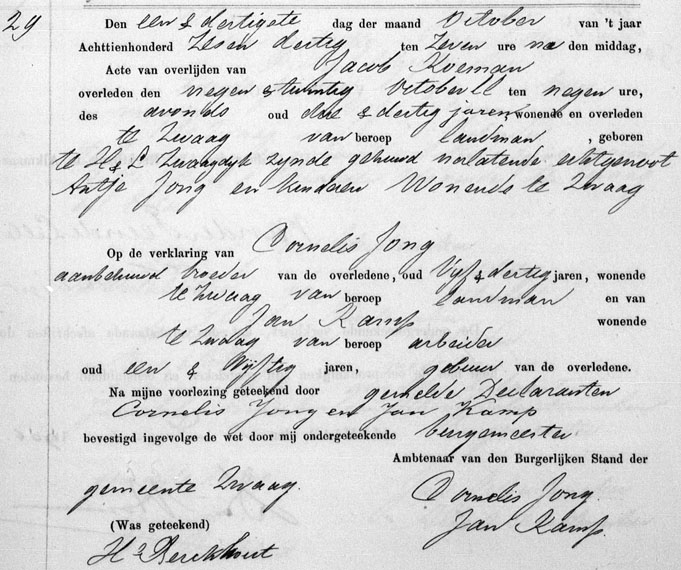 29
Den een & dertigste dag der maand October van 't jaar
Achttienhonderd Zes en dertig ten Zeven ure na den middag,
Acte van overlijden van Jacob Koeman
overleden den negen & twintig October ll ten negen ure,
des avonds oud drie & dertig jaren, wonende en overleden
te Zwaag van beroep landman, geboren
te H & L Zwaagdyk zynde gehuwd nalatende echtgenoot
Antje Jong en kinderen Wonende te Zwaag
Op de verklaring van Cornelis Jong
aanbehuwd broeder van de overledene, oud Vijf & dertig jaren, wonende
te Zwaag van beroep landman en van
Jan Kamp wonende
te Zwaag van beroep arbeider
oud een & Vijftig jaren, gebuur van de overledene.
Na mijne voorlezing geteekend door gemelde Declaranten
Cornelis Jong en Jan Kamp
bevestigd ingevolge de wet door mij ondergeteekende burgemeester
Ambtenaar van den Burgerlijken Stand der
gemeente Zwaag. Cornelis Jong.
(Was geteekend) Jan Kamp.
Hs Berckhout